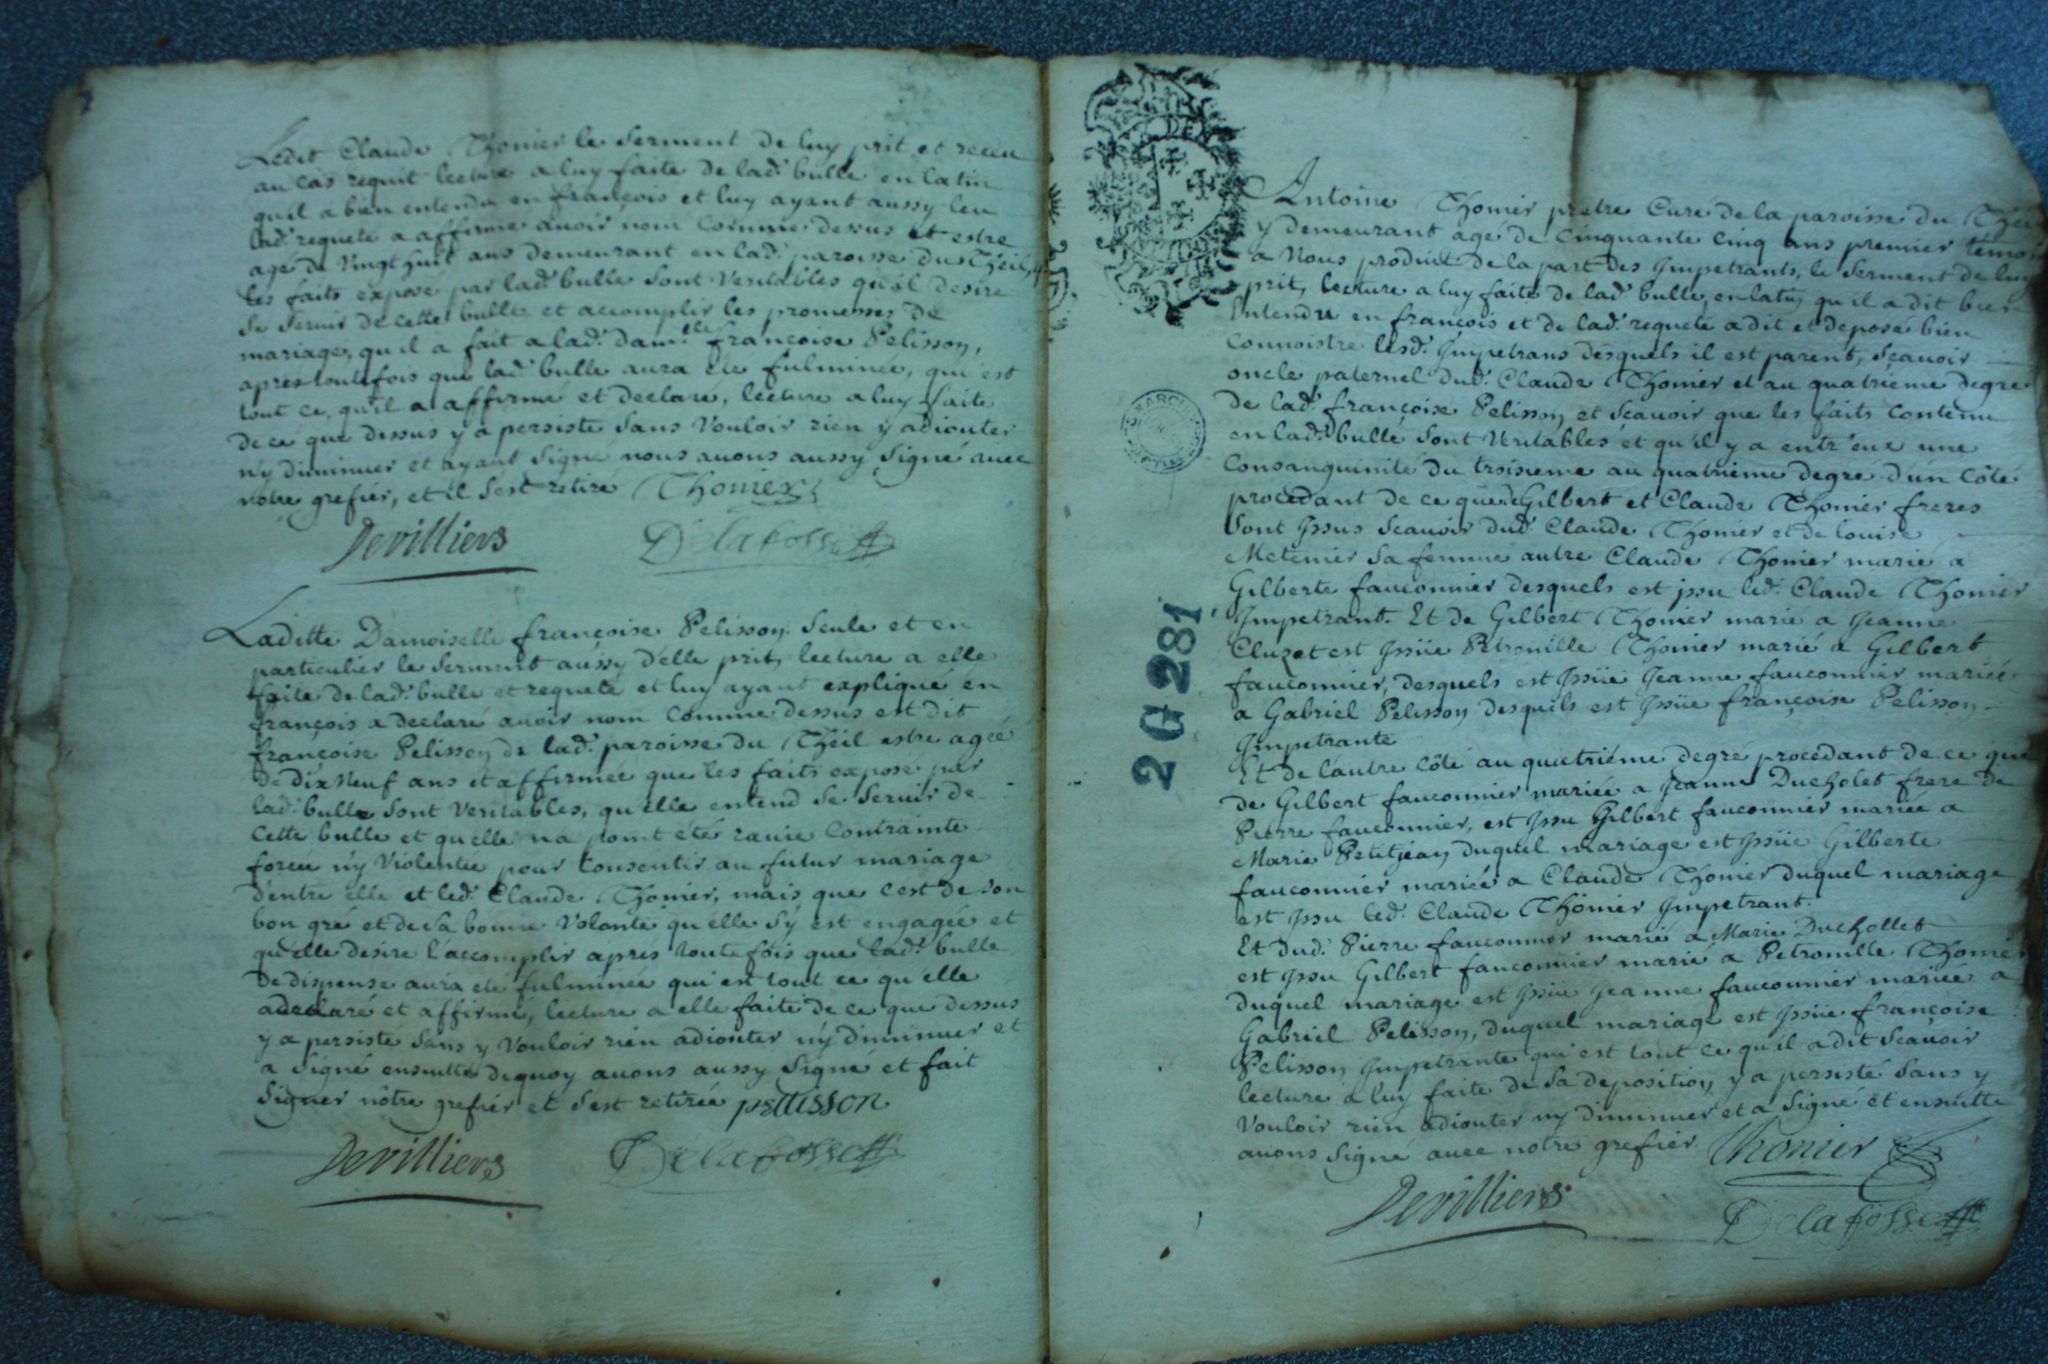 Ledit Claude Thonier le serment de luy prit et receu
au cas requit lecture a luy faite de lad. bulle en latin
quil a bien entendu en françois et luy ayant aussy leu
lad. requete a affirmé avoir nom comme dessus et estre
agé de vingt huit ans demeurant en lad. paroisse du Theil, q
les faits exposé par lad. bulle sont veritables qu'il desire
se servir de cette bulle et accomplir les promesses de
mariage, qu'il a fait a lad. dam.lle françoise Pelisson,
apres toutefois que lad. bulle aura été fulminée, qui est
tout ce, qu'il a affirmé et declaré, lecture a luy faite
de ce que dessus y a persisté sans vouloir rien y adiouter
n'y diminuer et ayant signé nous avons aussy signé avec
notre grefier, et il s'est retiré Thonier
Devilliers Delafosse
Laditte Damoiselle françoise Pelisson seule et en
particulier le serment aussy d'elle prit, lecture a elle
faite de lad. bulle et requete et luy ayant expliqué en
françois a declaré avoir nom comme dessus est dit
françoise Pelisson de lad. paroisse du Theil estre agée
de dix neuf ans et affirmée que les faits exposé par
lad. bulle sont veritables, qu'elle entend se servir de
cette bulle et quelle na point été ravie contrainte
forcée n'y violentée pour consentir au futur mariage
d'entre elle et led. Claude Thonier, mais que c'est de son
bon gré et de sa bonne volonté qu'elle s'y est engagée et
qu'elle desire l'accomplir aprés toute fois que lad. bulle
de dispense aura été fulminée qui est tout ce qu'elle
a declaré et affirmé, lecture a elle faite de ce que dessus
y a persisté sans y vouloir rien adiouter n'y diminuer et
a signé ensuitte dequoy avons aussy signé et fait
signer nôtre grefier et s'est retirée pellisson
Devilliers Delafosse
Antoine Thonier pretre Curé de la paroisse du Theil
y demeurant agé de cinquante cinq ans premier temoin
a Nous produit de la part des Impetrants, le serment de luy
prit, lecture a luy faite de lad. bulle en latin qu'il a dit bien
entendre en françois et de lad. requete a dit et deposé bien
connoistre lesd. Impetrans desquels il est parent, sçavoir
oncle paternel dud. Claude Thonier et au quatrième degré
de lad. françoise Pelisson et sçavoir que les faits contenu
en lad. bulle sont veritables et qu'il y a entr'eux une
consanguinité du troisieme au quatriéme degré d'un côté
procedant de ce que de Gilbert et Claude Thonier freres
sont issus sçavoir dud. Claude Thonier et de louise
Metenier sa femme autre Claude Thonier marié a
Gilberte fauconnier desquels est issu led. Claude Thonier
Impetrant. Et de Gilbert Thonier marié a Jeanne
Cluzet est issüe Petronille Thonier marié a Gilbert
fauconnier, desquels est issüe Jeanne fauconnier mariée
a Gabriel Pelisson desquels est issüe françoise Pelisson
Impetrante
Et de l'autre côté au quatriéme degré procedant de ce que
de Gilbert fauconnier mariée a Jeanne Ducholet frere de
Pierre fauconnier, est issu Gilbert fauconnier mariée a
Marie Petitjean duquel mariage est issüe Gilberte
fauconnier mariée a Claude Thonier duquel mariage
est issu led. Claude Thonier Impetrant.
Et dud. Pierre fauconnier marié a Marie Duchollet
est issu Gilbert fauconnier marié a Petronille Thonier
duquel mariage est issüe Jeanne fauconnier mariée a
Gabriel Pelisson, duquel mariage est issüe françoise
Pelisson Impetrante qui est tout ce qu'il a dit sçavoir
lecture a luy faite de sa deposition y a persisté sans y
vouloir rien adiouter ny diminuer et a signé et ensuitte
avons signé avec notre grefier. Thonier
Devilliers Delafosse
2 G 281